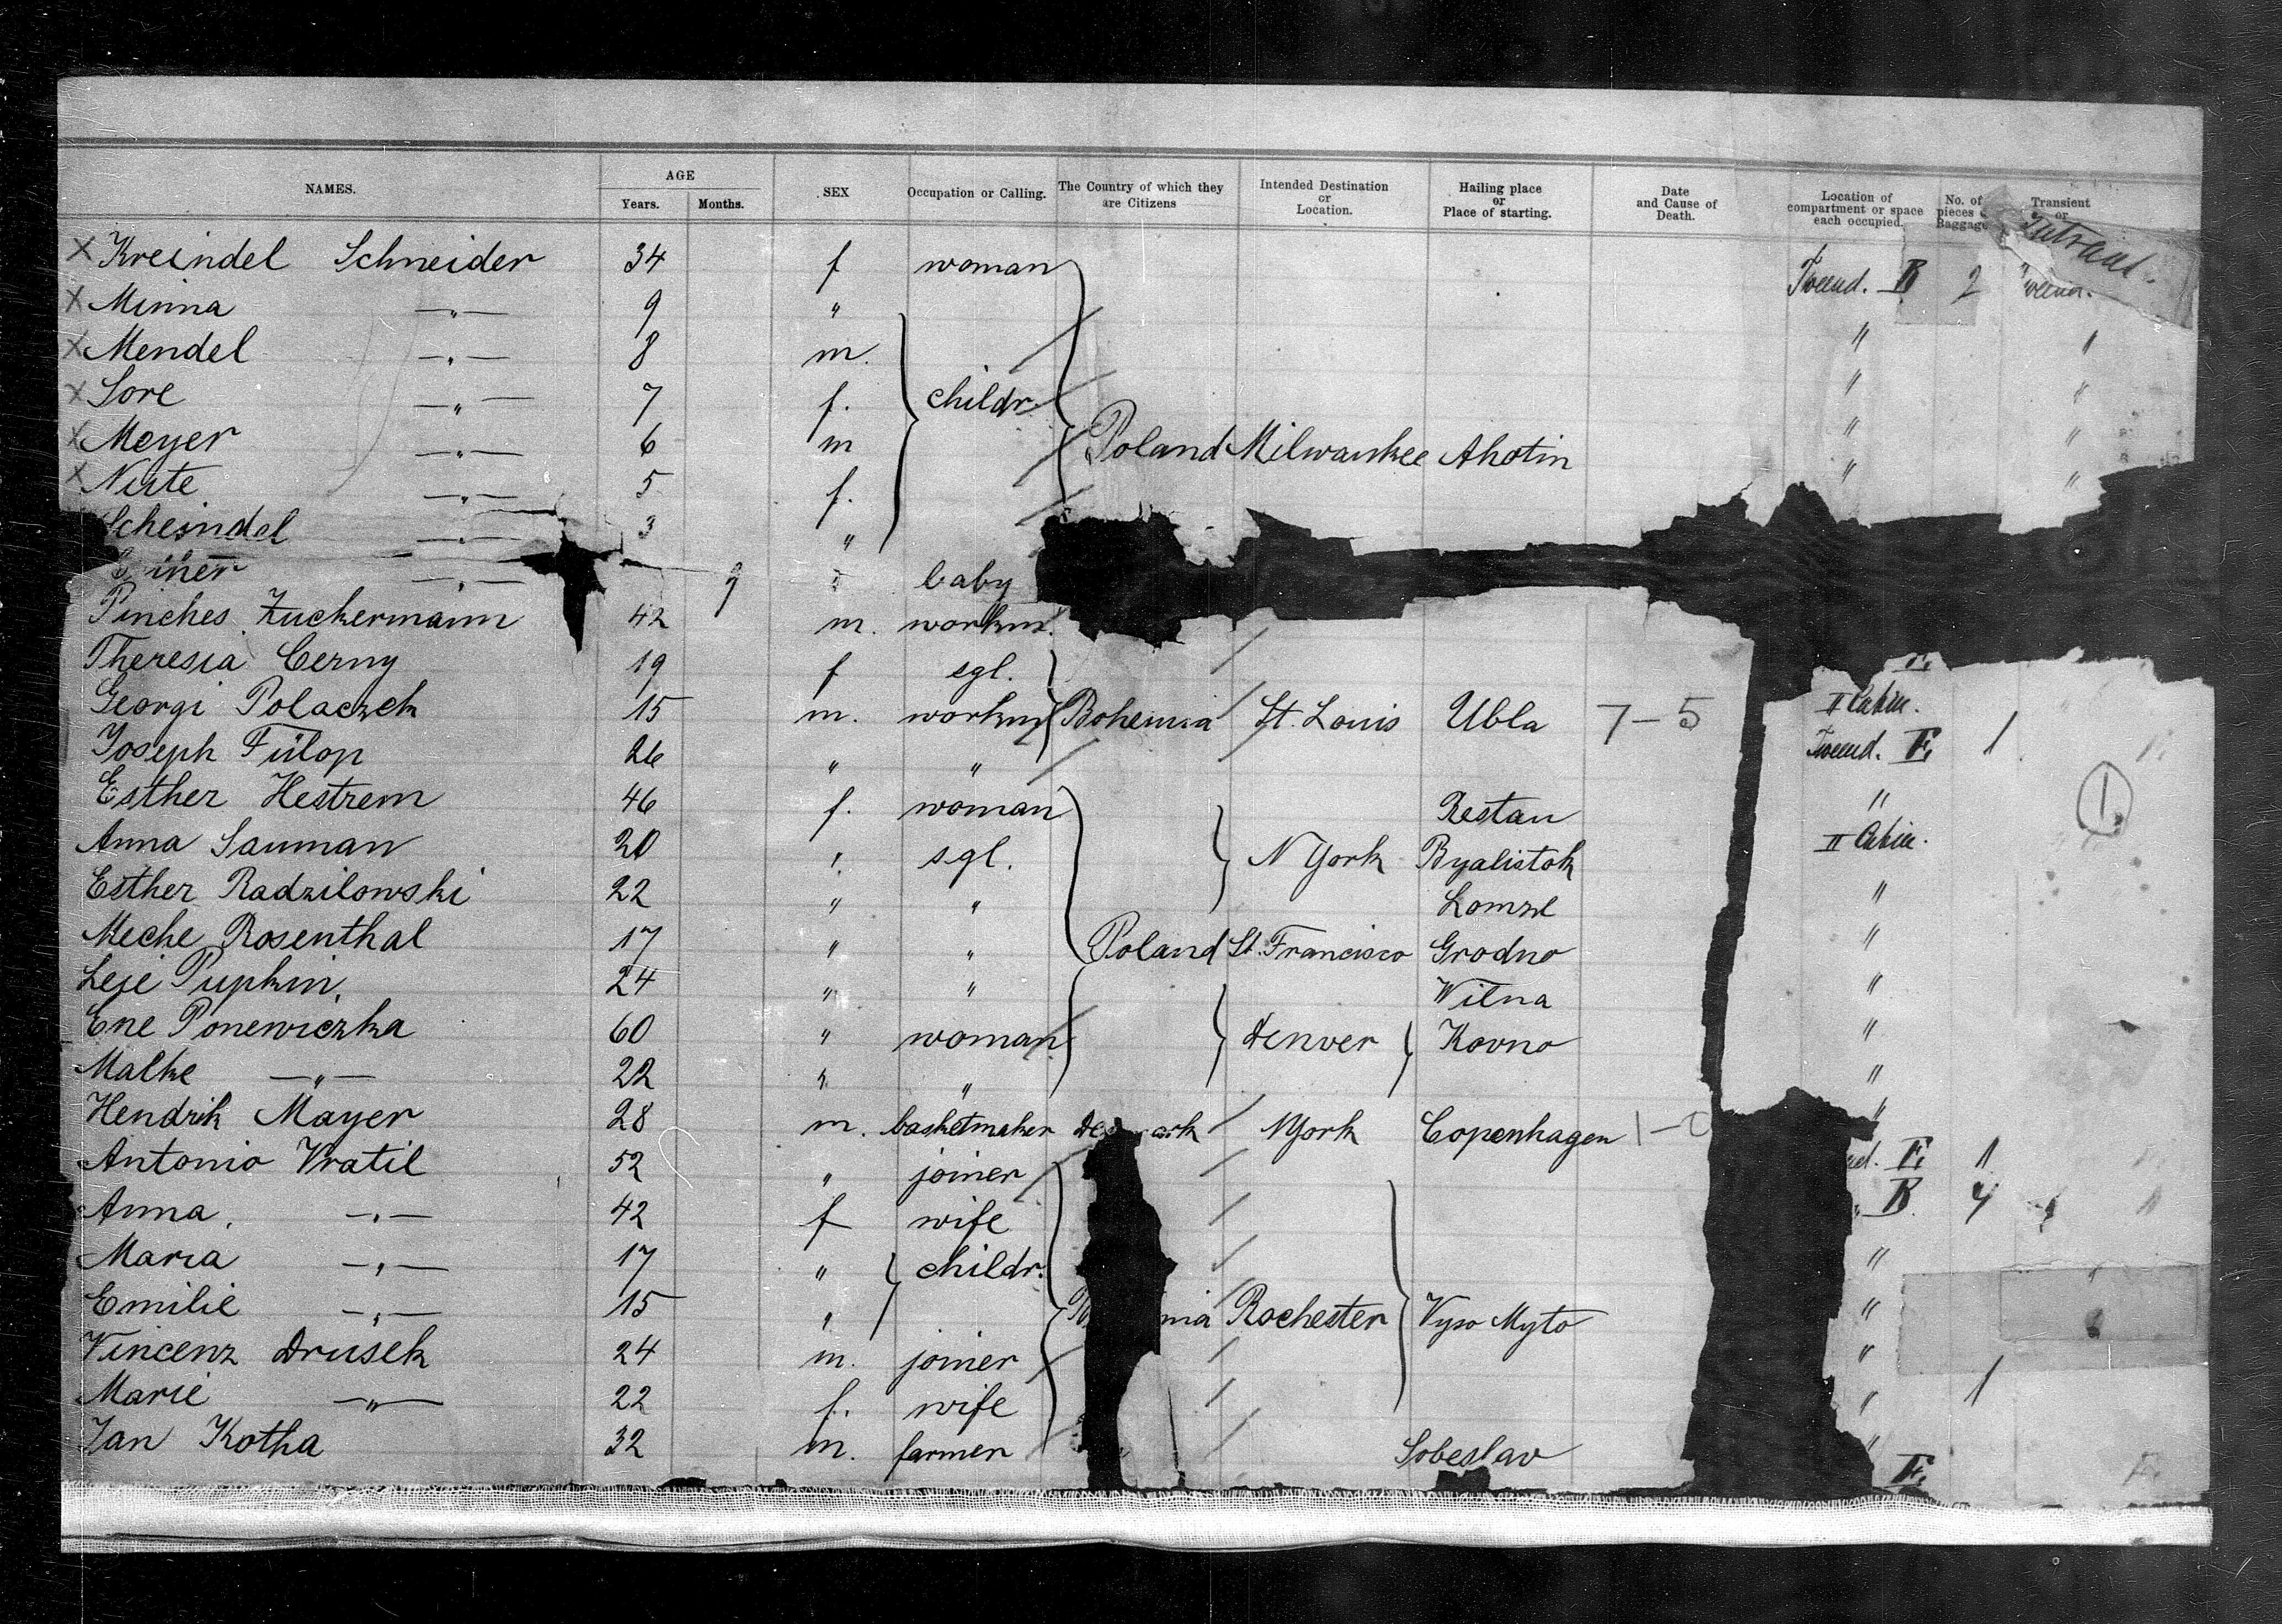 NAMES. AGE Years. Months. SEX Occupation or Calling. The Country of which they are Citizens Intended Destination or Location. Hailing place or Place of starting. Date and Cause of Death. Location of compartment or space each occupied. No. of pieces Baggage Transient or
X Kreindel Schneider 34 f woman Tweend. B 2
X Minna —"— 9 "
X Mendel —"— 8 m. " "
X Sore —"— 7 f. childr. " "
X Meyer —"— 6 m Poland Milwaukee Ahotin " "
X Niste —"— 5 f. " "
Scheindel —"— 3 "
—"— 9 baby
Pinches Zuckermann 42 m. workm.
Theresia Cerny 19 f sgl.
Georgi Polaczek 15 m. workm Bohemia St. Louis Ubla 7-5 II Cabin.
Joseph Fülop 26 " " Tweend. E 1
Esther Hestrem 46 f. woman Restau " 1.
Anna Sauman 20 " sgl. N York Byalistok II Cabin.
Esther Radzilowski 22 " " Lomze "
Meche Rosenthal 17 " " Poland St. Francisco Grodno "
Leje Pupkin 24 " " Wilna "
Ene Ponewiczka 60 " woman Denver Kovno "
Malke —"— 22 " " "
Hendrik Mayer 28 m. basketmaker De ark NYork Copenhagen "
Antonio Vratil 52 " joiner E 1
Anna —"— 42 f wife B 4
Maria —"— 17 " childr. "
Emilie —"— 15 " nia Rochester Vyso Myto "
Vincenz Drusek 24 m. joiner "
Marie —"— 22 f. wife " 1
Jan Kotha 32 m. farmer " Sobeslav "
E